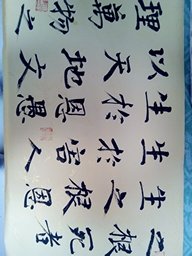 之根死者
生之根恩
生於害人
生於恩愚
以天地文
理萬物之